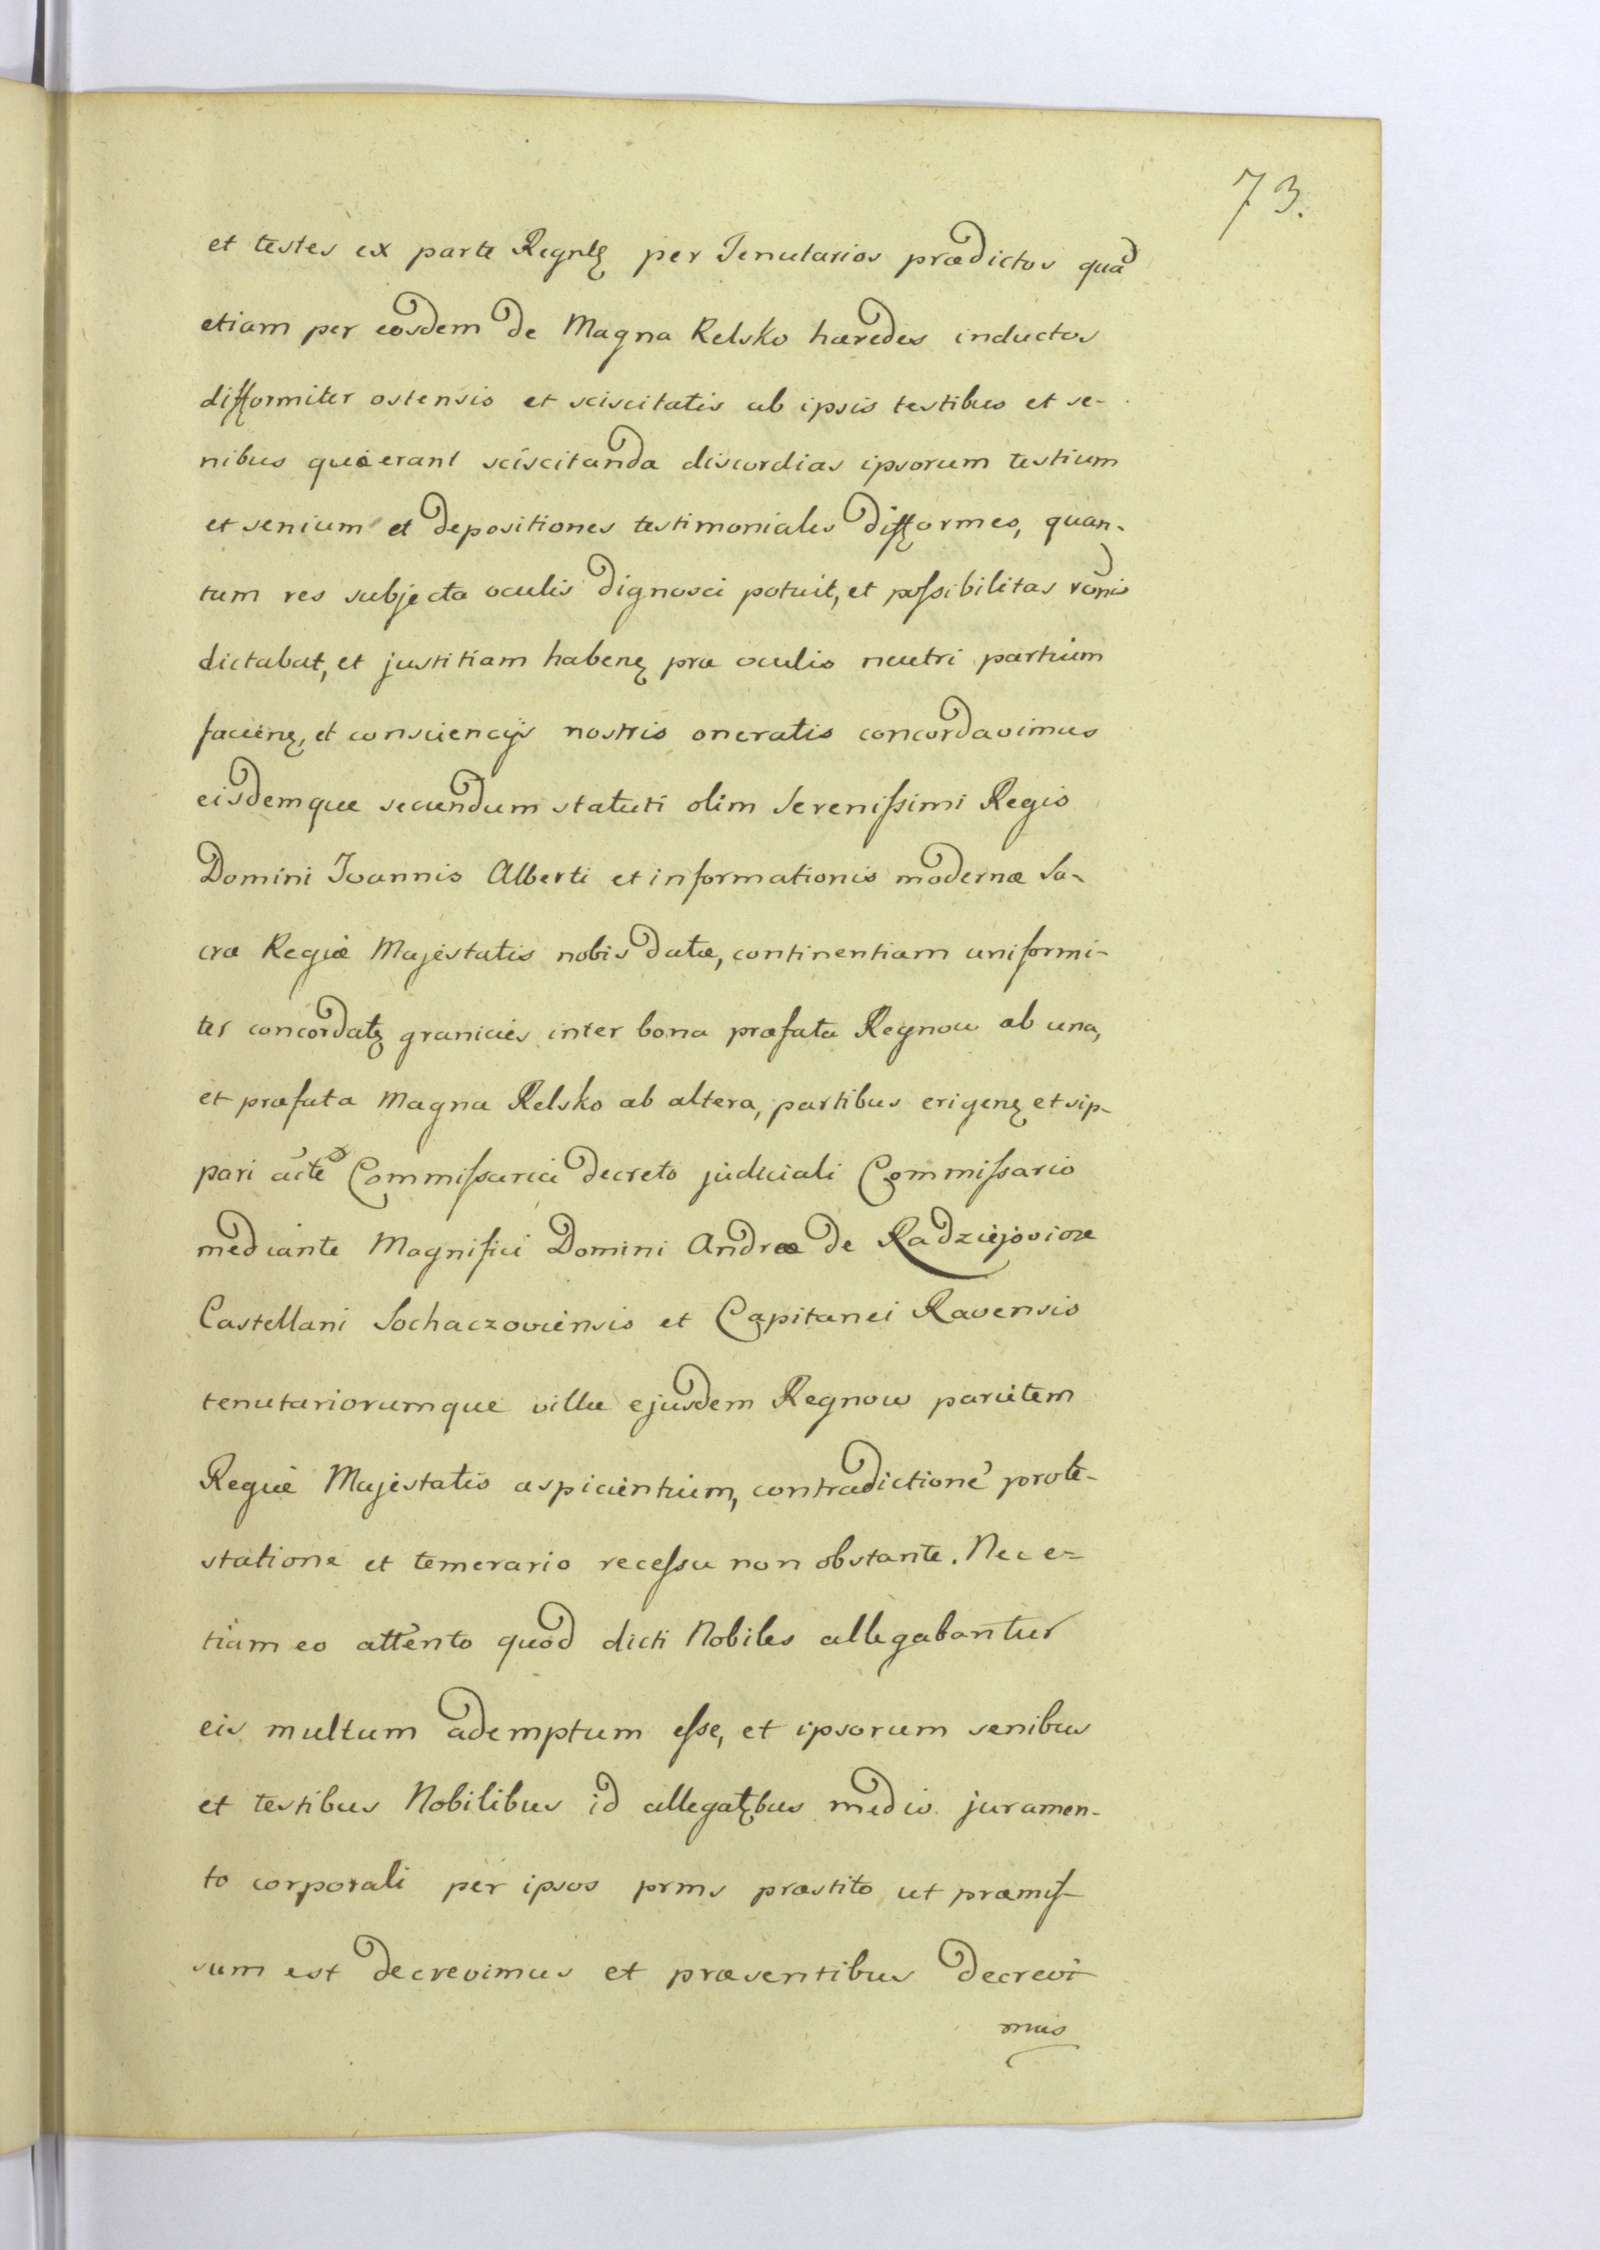 73.
et testes ex parte Regntę per Tenutarios prædictos quā
etiam per eosdem de Magna Relsko hæredes inductos
difformiter ostensis et sciscitatis ab ipsis testibus et se-
nibus quæ erant sciscitanda discordias ipsorum testium
et senium et depositiones testimoniales difformes, quan-
tum res subjecta oculis dignosci potuit, et possibilitas rōnis
dictabat, et justitiam habenę præ oculis neutri partium
facienę, et conscienciis nostris oneratis concordavimus
eisdemque secundum statuti olim Serenissimi Regis
Domini Joannis Alberti et informationis modernæ Sa-
cræ Regiæ Majestatis nobis datæ, continentiam uniformi-
ter concordatę granicies inter bona præfata Regnow ab una,
et præfata Magna Relsko ab altera, partibus erigenę et sip-
pari Commissarici decreto judiciali Commissario
mediante Magnifici Domini Andreæ de Radziejovice
Castellani Sochaczoviensis et Capitanei Ravensis
tenutariorumque villæ ejusdem Regnow parietem
Regiæ Majestatis aspicientium, contradictione prote-
statione et temerario recessu non obstante. Nec e=
tiam eo attento quod dicti Nobiles allegabantur
eis multum ademptum esse, et ipsorum senibus
et testibus Nobilibus id allegatębus medio juramen-
to corporali per ipsos prms præstito ut præmis-
sum est decrevimus et præsentibus decrevi-
mus